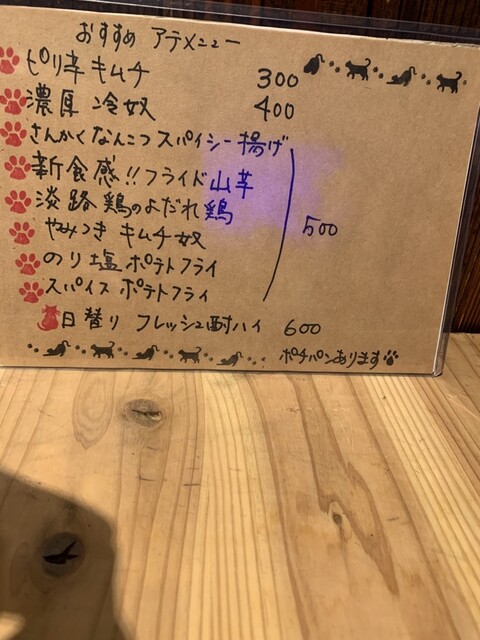 おすすめ アテメニュー
ピリ辛キムチ 300
濃厚 冷奴 400
さんかくなんこつスパイシー揚げ
新食感!!フライド山芋
淡路鶏のよだれ鶏
やみつき キムチ奴 500
のり塩 ポテトフライ
スパイス ポテトフライ
日替り フレッシュ酎ハイ 600
ポチパンあります